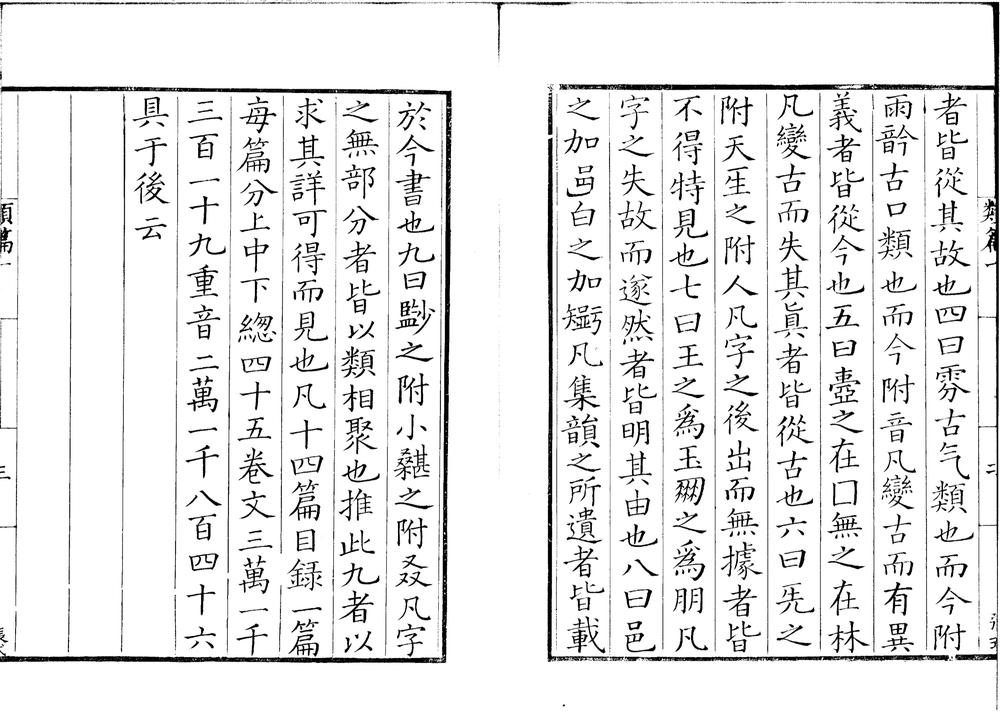 類篇一
二
者皆從其故也四曰雰古气類也而今附
雨古口類也而今附音凡變古而有異
義者皆從今也五曰壼之在囗無之在林
凡變古而失其眞者皆從古也六曰之
附天之附人凡字之後出而無據者皆
不得特見也七曰王之爲玉之爲朋凡
字之失故而遂然者皆明其由也八曰邑
之加白之加凡集韻之所遺者皆載
於今書也九曰之附小之附叒凡字
之無部分者皆以類相聚也推此九者以
求其詳可得而見也凡十四篇目録一篇
每篇分上中下緫四十五卷文三萬一千
三百一十九重音二萬一千八百四十六
具于後云
類篇一
三